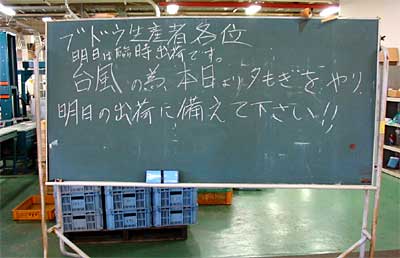 ブドウ生産者各位
明日は臨時出荷です。
台風の為、本日より夕もぎをやり、
明日の出荷に備えて下さい!!